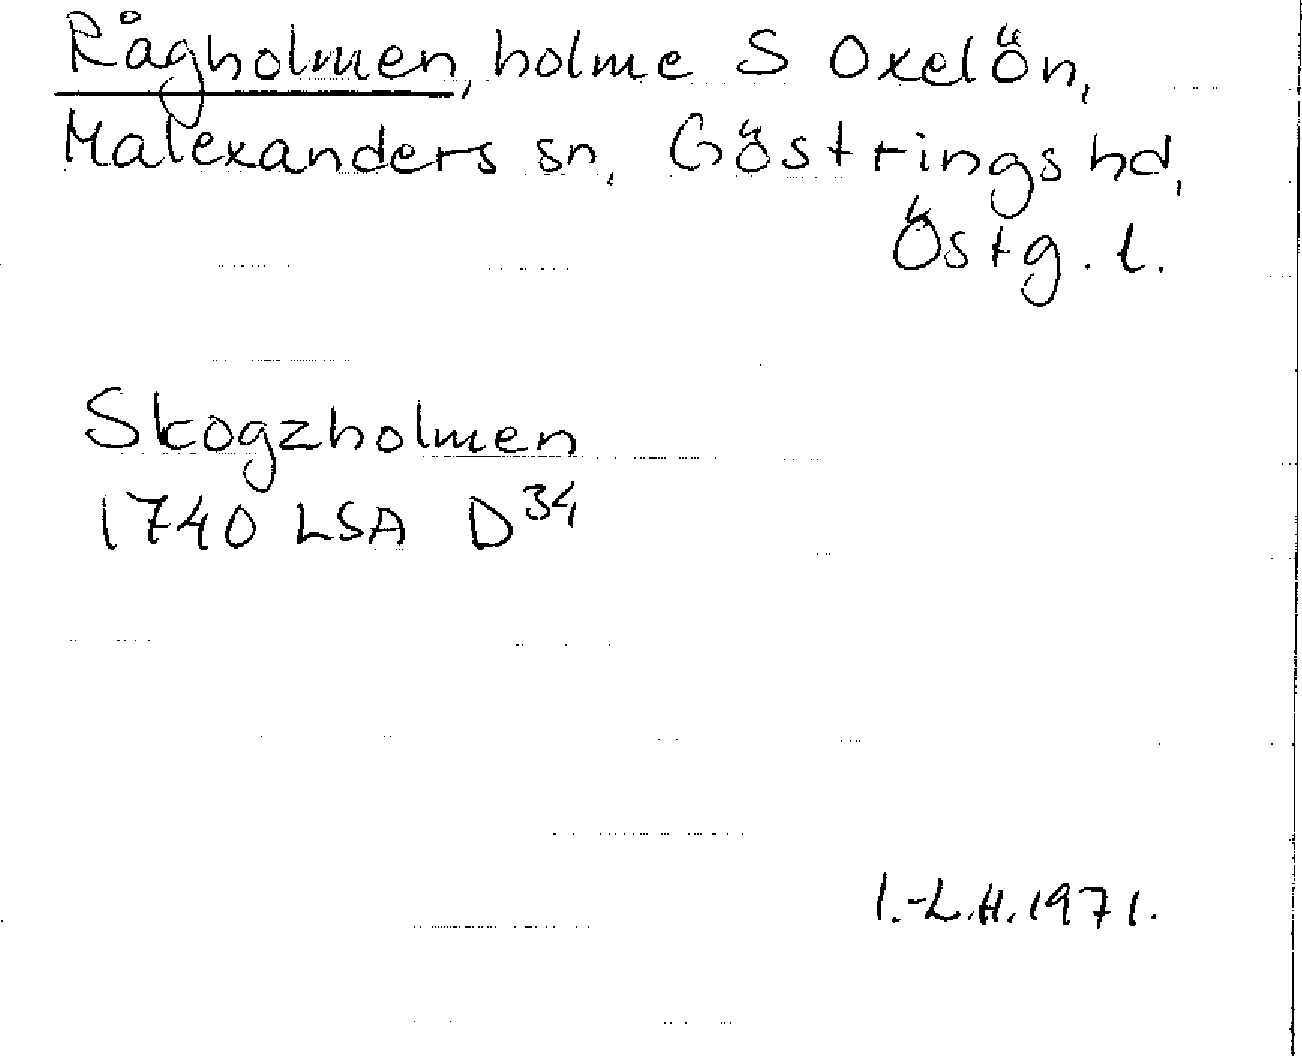 Rågholmen, holme S Oxelön,
Malexanders sn, Göstrings hd,
Östg. l.
Skogzholmen
1740 LSA D34
I.-L.H. 1971.